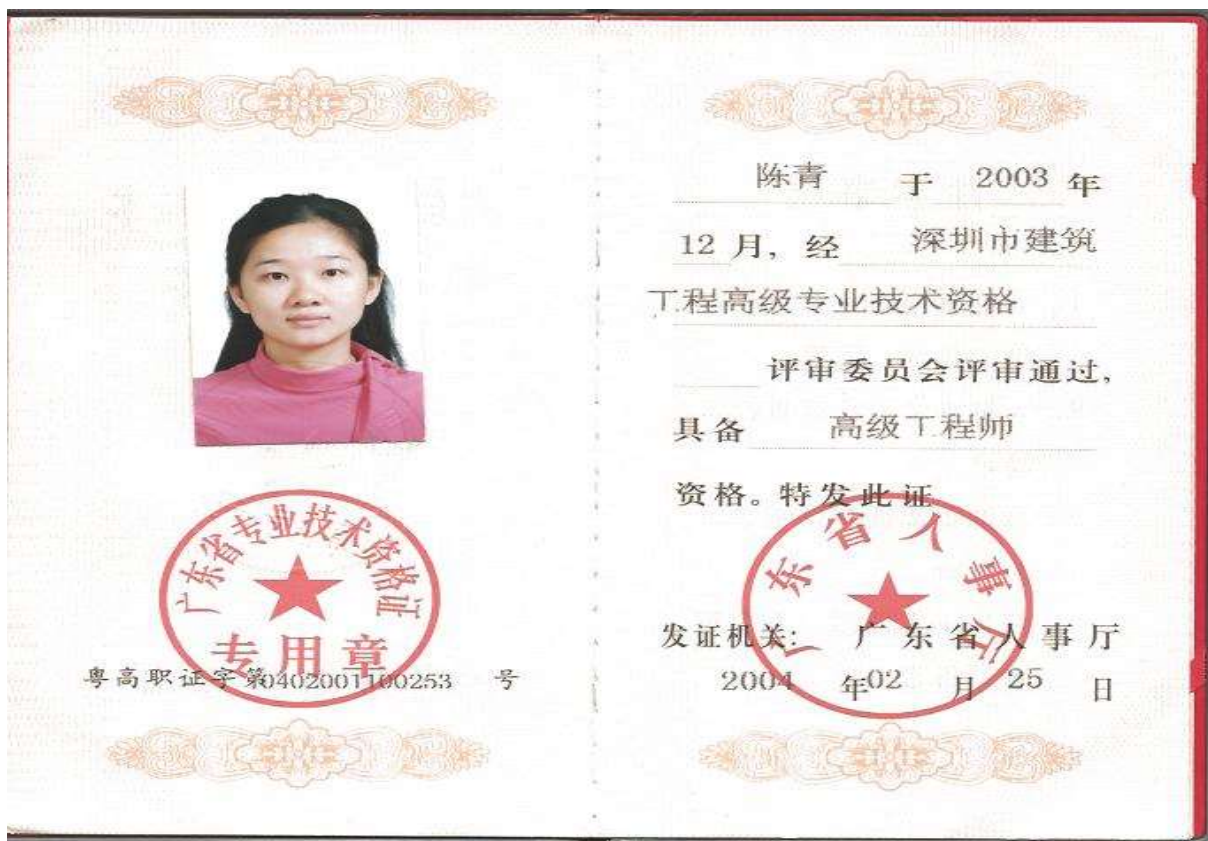 广东省专业技术资格证
专用章
粤高职证字第0402001100253 号
陈青 于 2003 年
12 月, 经 深圳市建筑
工程高级专业技术资格
评审委员会评审通过,
具备 高级工程师
资格。特发此证
广东省人事厅
发证机关: 广东省人事厅
2004 年02 月 25 日